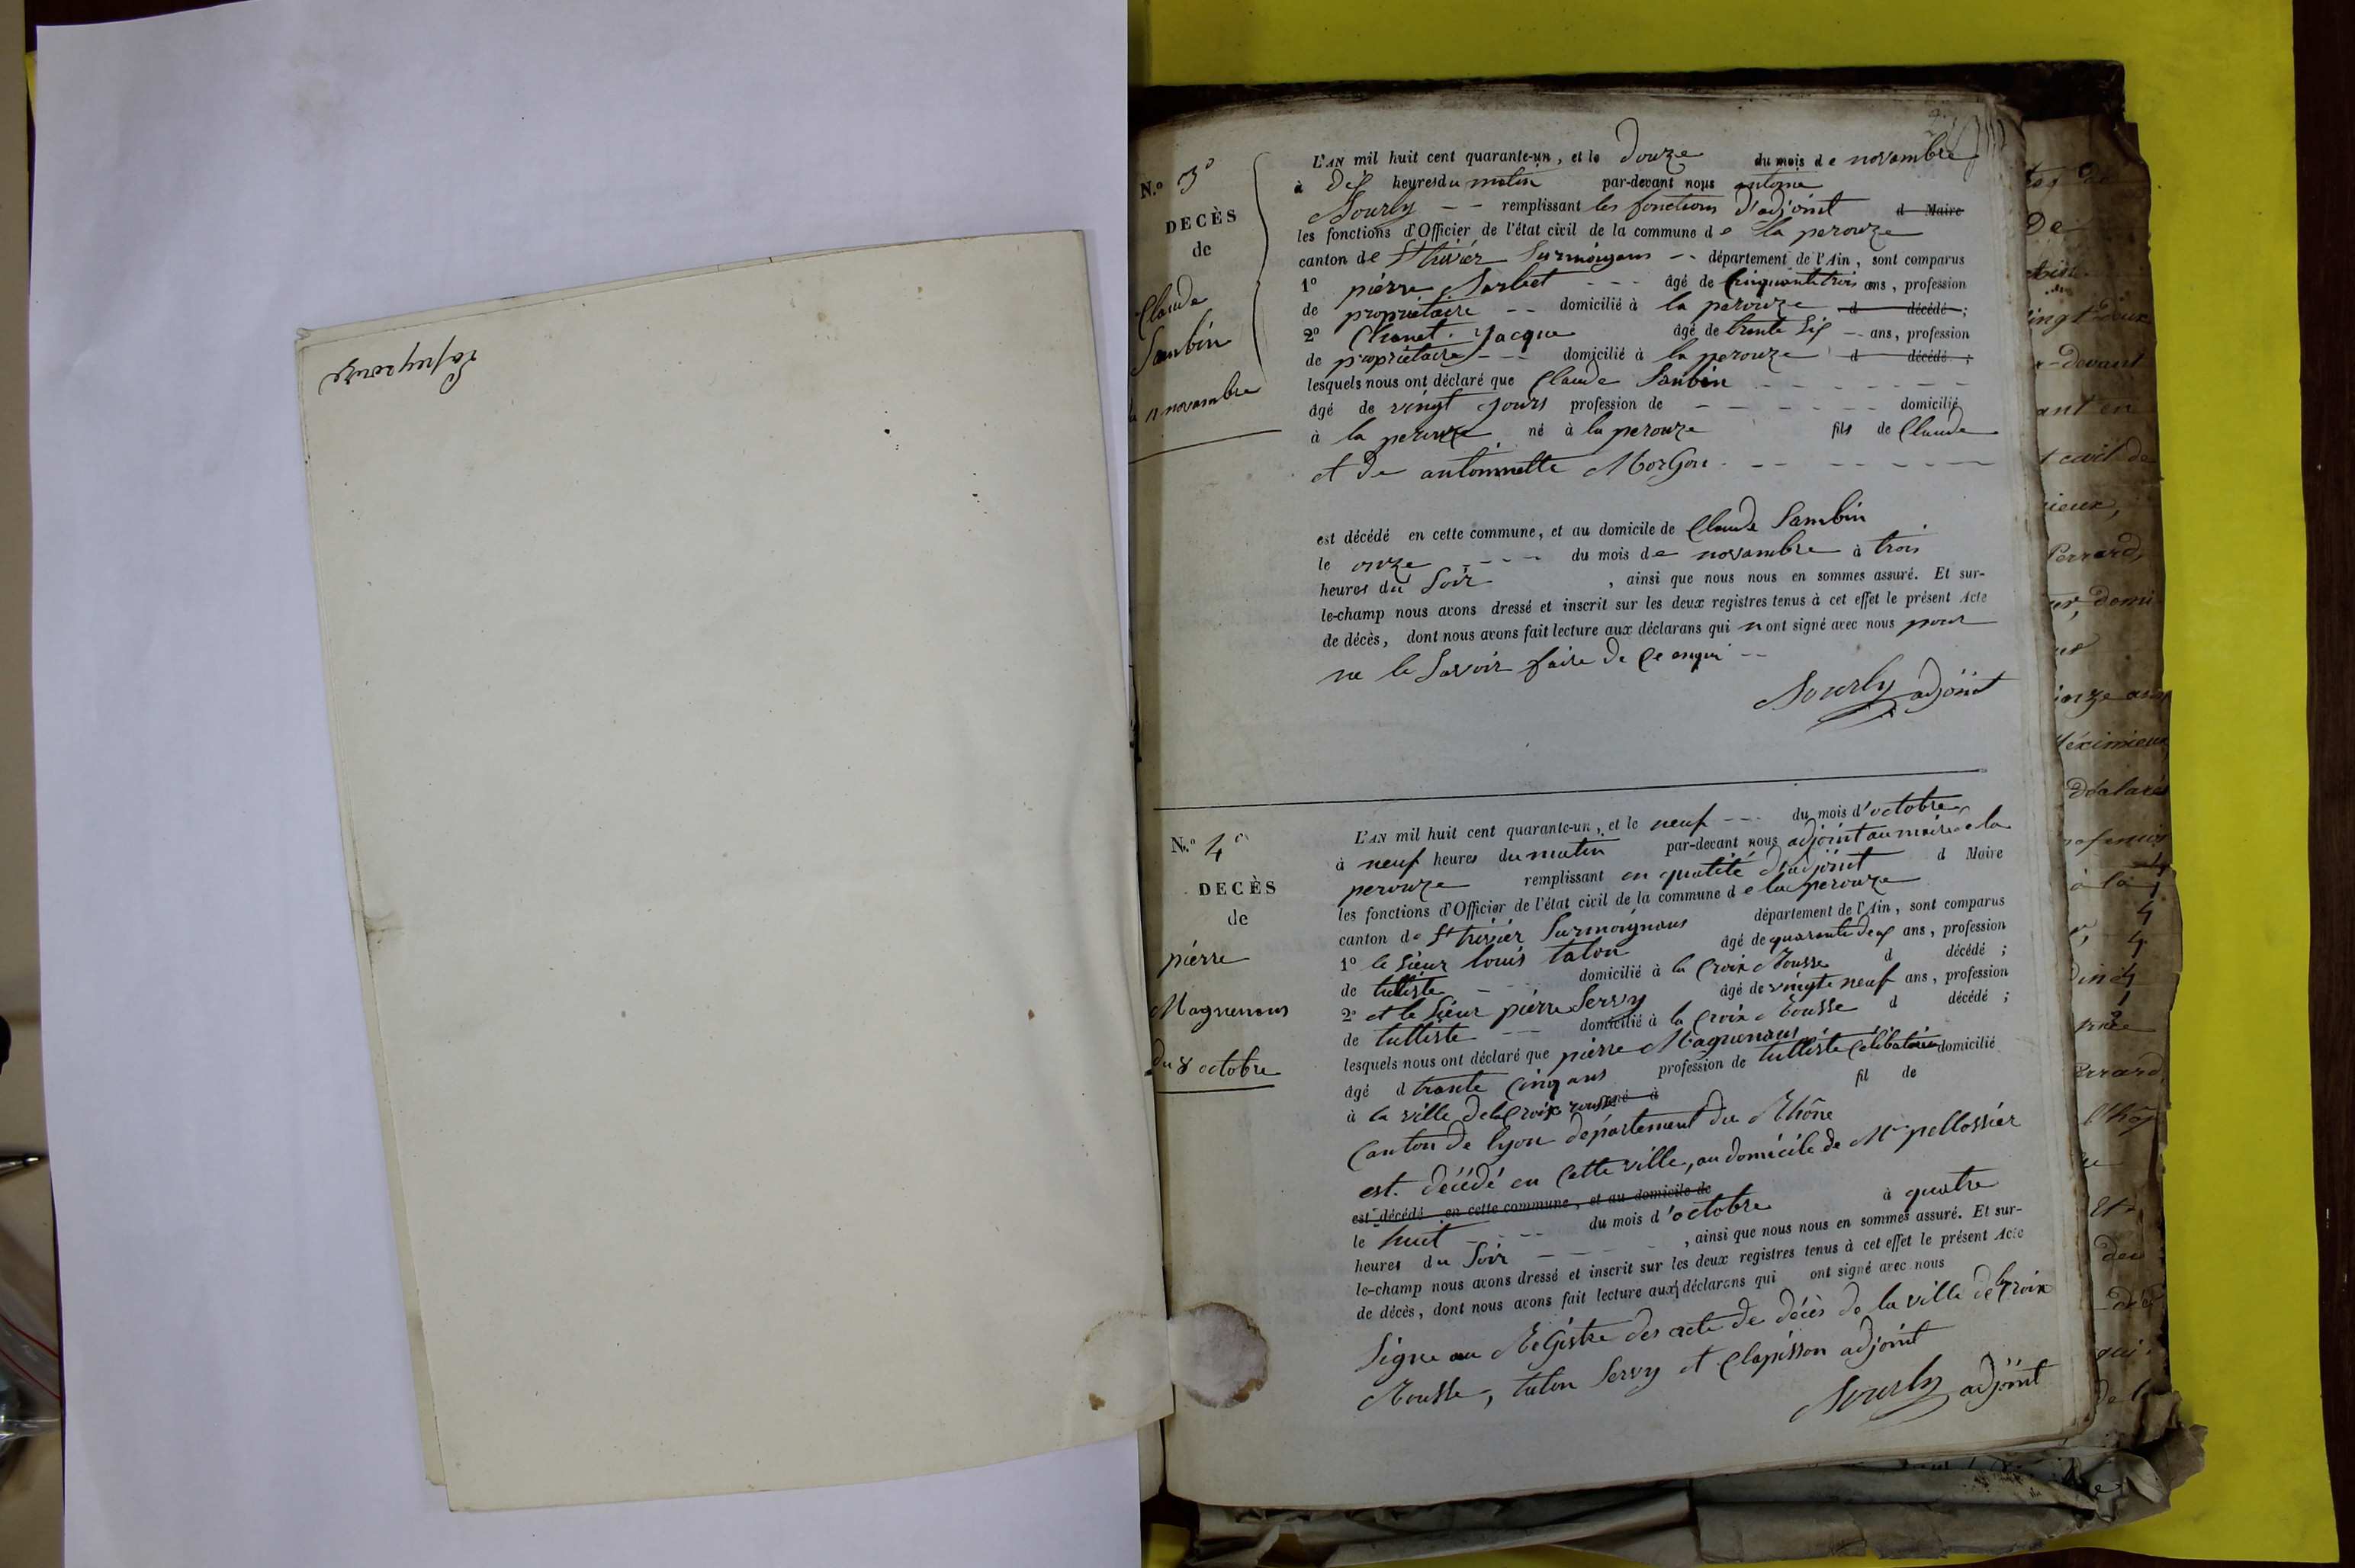 Lapeyrouze
N.º 3º
DECÈS
de
Claude
Sambin
11 novembre
L'AN mil huit cent quarante-un, et le douze du mois de novembre
à dix heures du matin par-devant nous antoine
Nourly -- remplissant les fonctions d'adjoint d Maire
les fonctions d'Officier de l'état civil de la commune de la perouze
canton de St trivier Surmoignans -- département de l'Ain, sont comparus
1º pierre Sarbet --- âgé de Cinquante trois ans, profession
de propriétaire -- domicilié à la perouze d décédé ;
2º Chanet Jacque âgé de trente Six -- ans, profession
de propriétaire --- domicilié à la perouze d décédé ;
lesquels nous ont déclaré que Claude Sambin
âgé de vingt jours profession de - - - - domicilié
à la perouze né à la perouze fils de Claude
et de antoinette Morgon
est décédé en cette commune, et au domicile de Claude Sambin
le onze ---- du mois de novambre à trois
heures du Soir , ainsi que nous nous en sommes assuré. Et sur-
le-champ nous avons dressé et inscrit sur les deux registres tenus à cet effet le présent Acte
de décès, dont nous avons fait lecture aux déclarans qui n ont signé avec nous pour
ne le Savoir faire de Ce enqui --
Nourly adjoint
N.º 4º
DECÈS
de
pierre
Magnenous
du 8 octobre
L'AN mil huit cent quarante-un, et le neuf --- du mois d'octobre
à neuf heures du matin par-devant nous adjoint au maire de la
perouze remplissant en qualité d'adjoint d Maire
les fonctions d'Officier de l'état civil de la commune de la perouze
canton de St trivier Surmoignans département de l'Ain, sont comparus
1º le Sieur louis talon âgé de quarante deux ans, profession
de tulliste -- domicilié à la Croix Rousse d décédé ;
2º et le Sieur pierre Servy âgé de vingte neuf ans, profession
de tulliste --- domicilié à la Croix Rousse d décédé ;
lesquels nous ont déclaré que pierre Magnenous
âgé d trante Cinq ans profession de tulliste Célibataire domicilié
à la ville de la Croix rousse né à fil de
Canton de lyon département du Rhône
est décédé en Cette ville, au domicile de Mr pellossier
est décédé en cette commune, et au domicile de
le huit ---- du mois d'octobre à quatre
heures du Soir ---- , ainsi que nous nous en sommes assuré. Et sur-
le-champ nous avons dressé et inscrit sur les deux registres tenus à cet effet le présent Acte
de décès, dont nous avons fait lecture aux déclarans qui ont signé avec nous
Signe au Régistre des acte de décès de la ville de la Croix
Rousse, talon Servy et Clapisson adjoint
Nourly adjoint